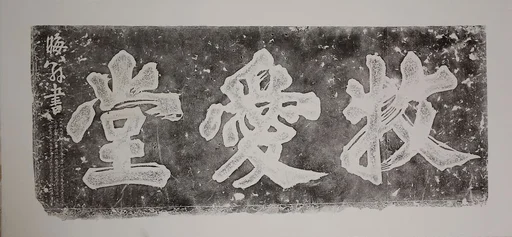 牧愛堂
晦翁書